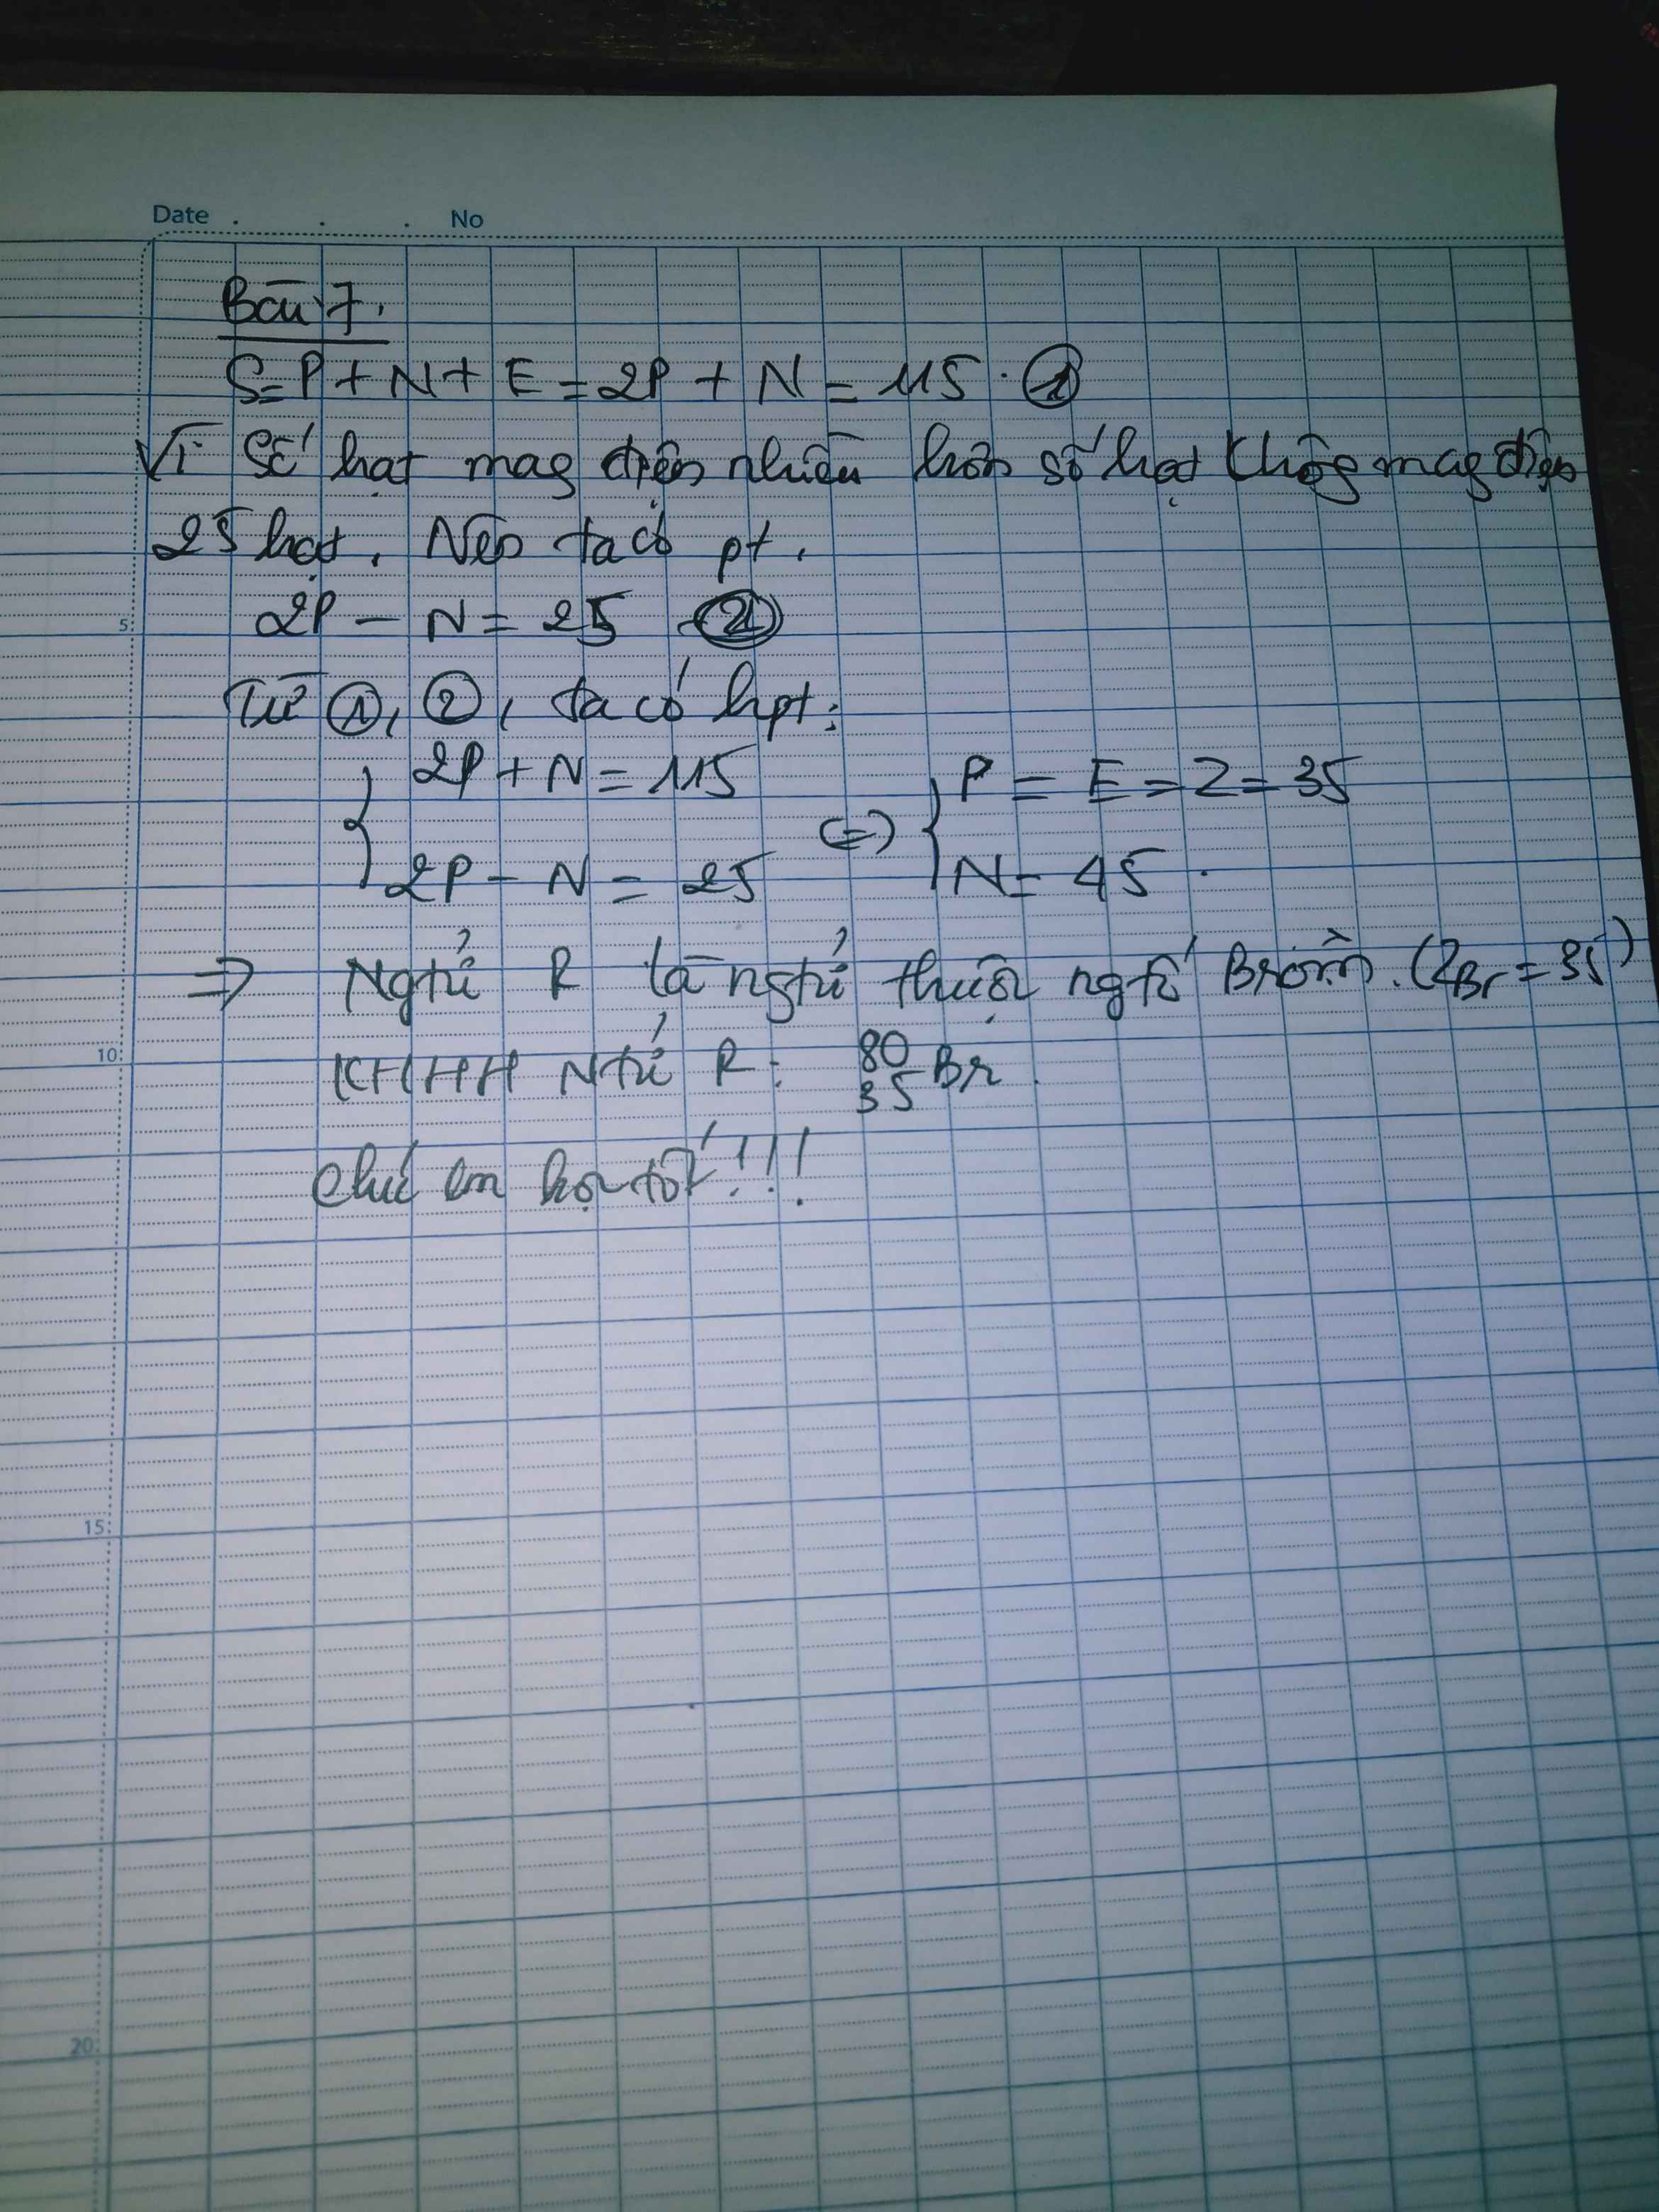 Date . . . No
Bài 7.
S=P+N+E=2P+N=115. ①
Vì số hạt mag điện nhiều hơn số hạt khôg mag điện
25 hạt. Nên ta có pt.
5:
2P - N = 25 ②
Từ ①, ②, ta có hpt:
{ 2P+N=115 (=) { P = E = Z = 35
2P - N = 25 N= 45.
=> Ngtử R là ngtử thuộc ngtố Bròm. (ZBr = 35)
10:
KHHH Ntử R: 80 35 Br.
chúc em học tốt!!!
15:
20: